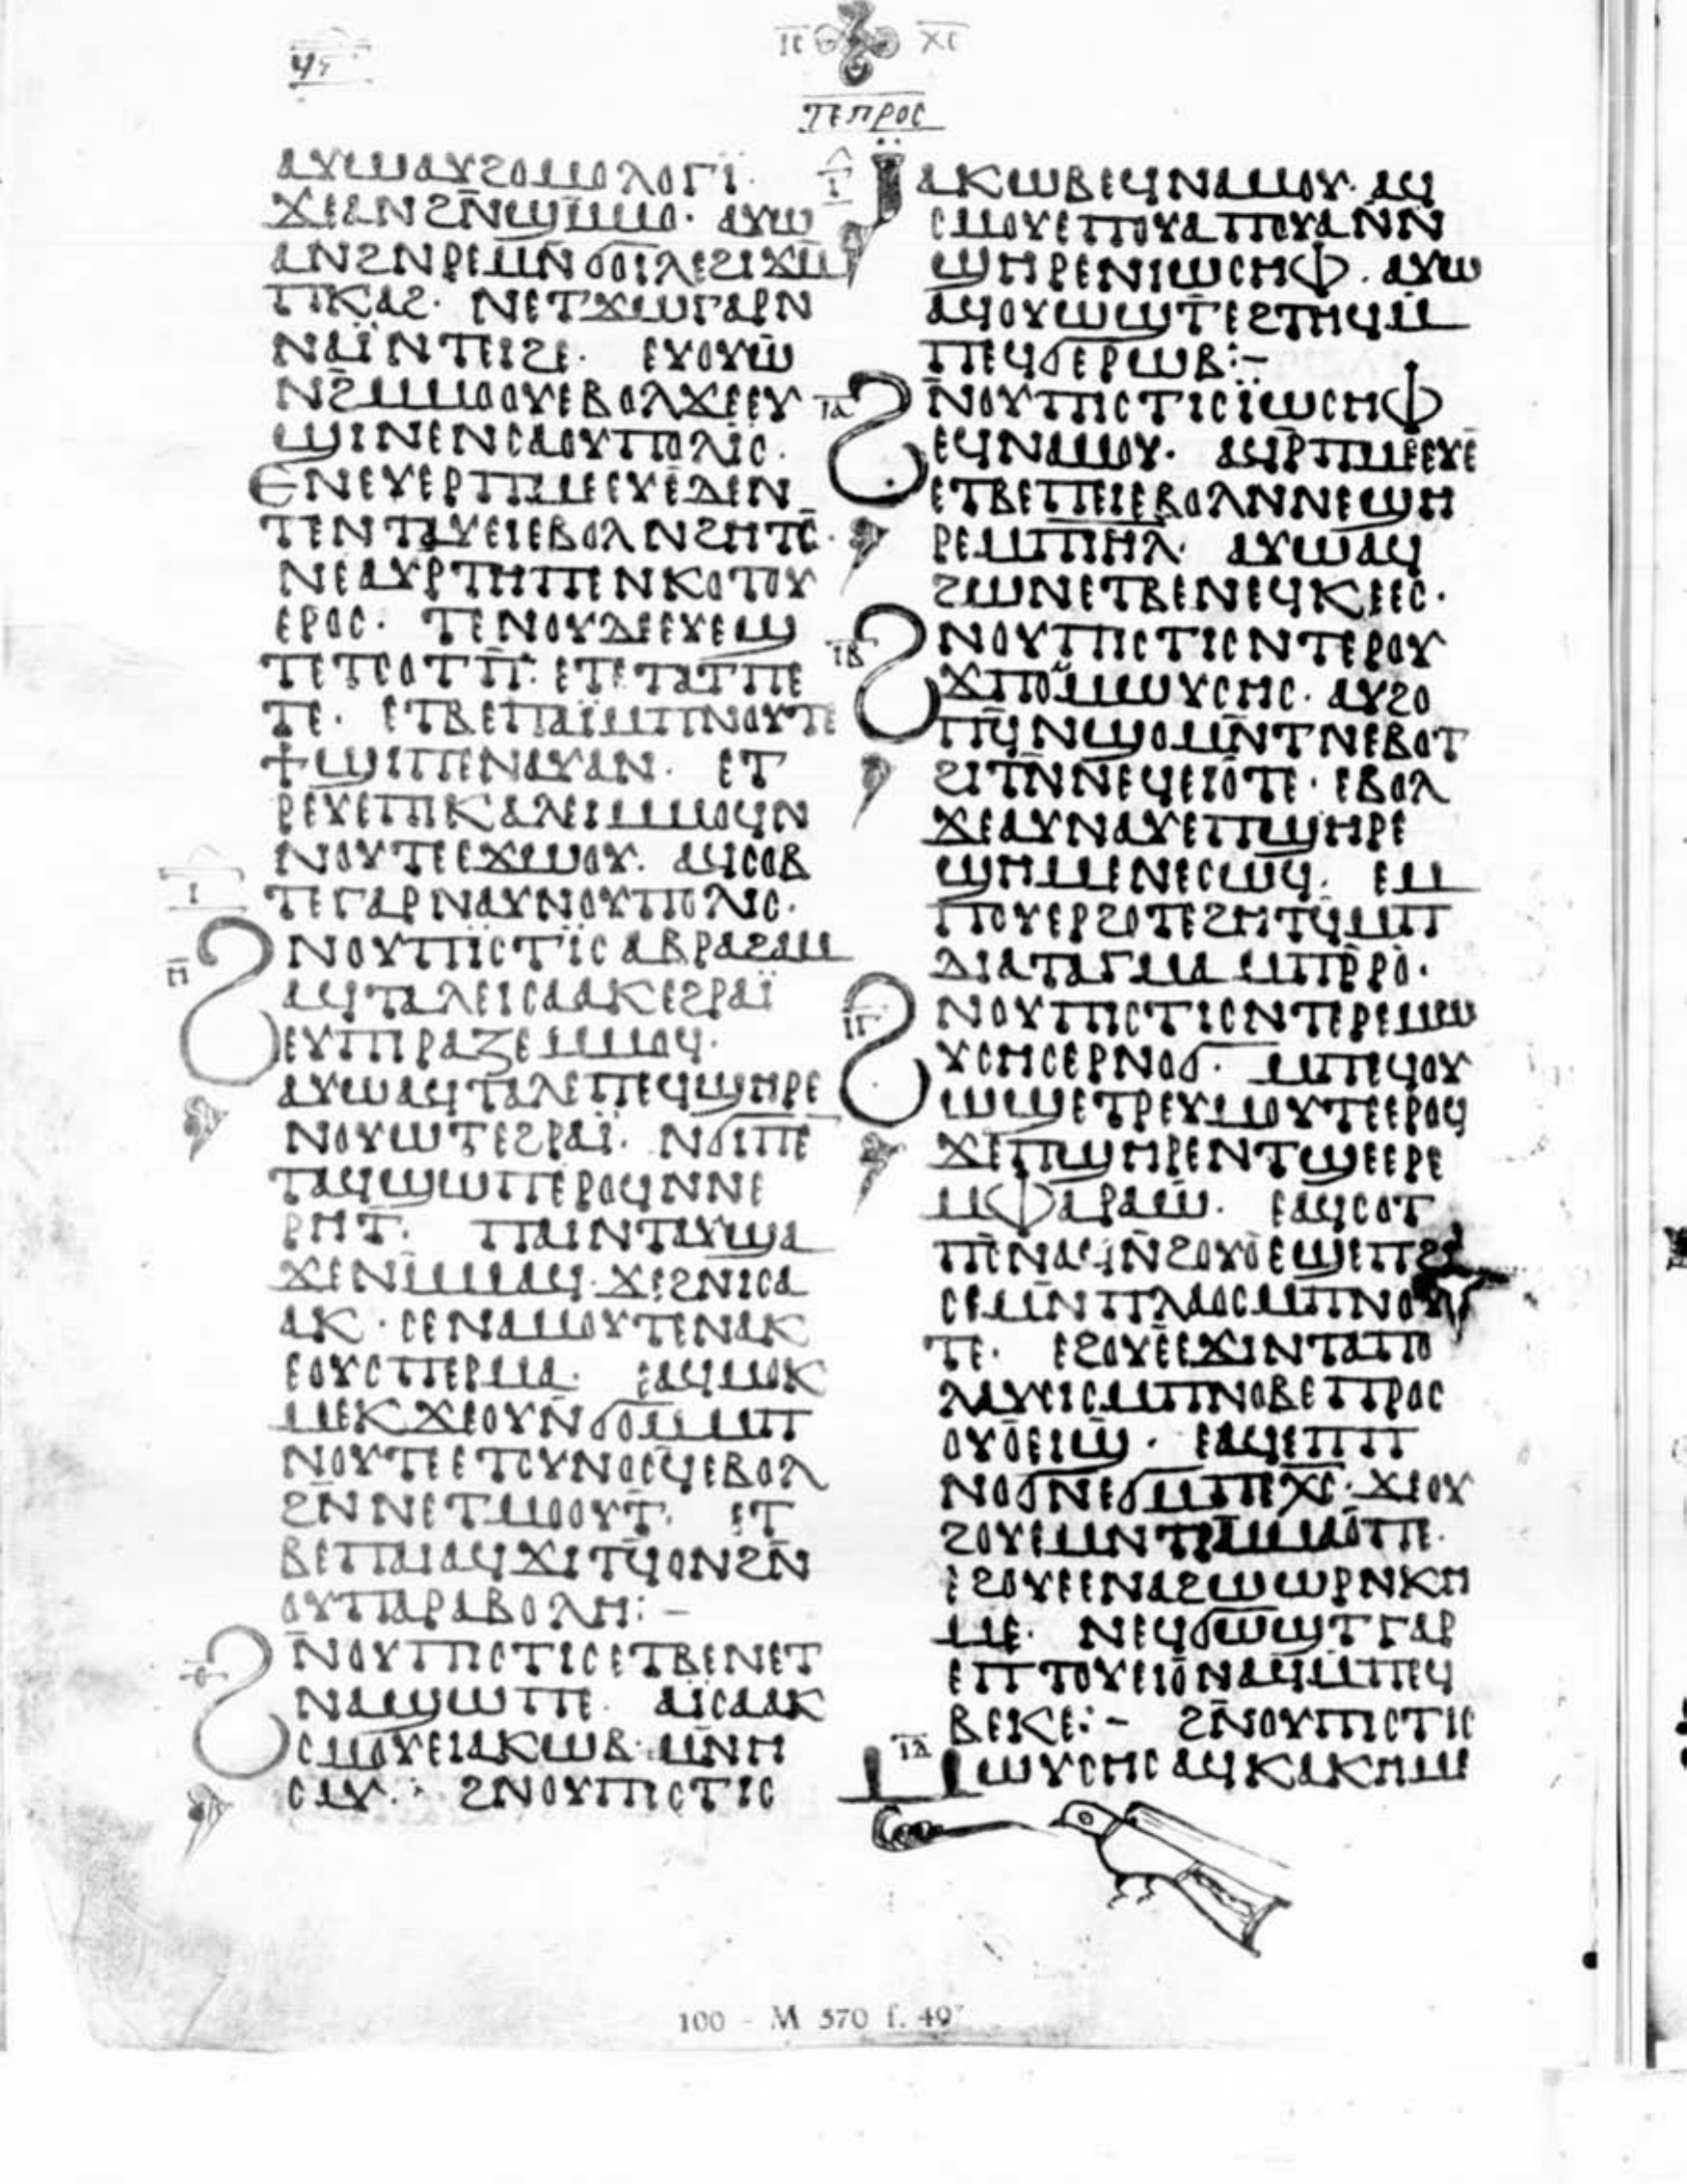 ϥⲋ
ⲓ̅ⲥ̅ ⲭ̅ⲥ̅
ⲧⲉⲡⲣⲟⲥ
ⲁⲩⲱⲁⲩϩⲟⲙⲟⲗⲟⲅⲓ·
ϫⲉⲁⲛϩⲛ̅ϣⲙ̅ⲙⲟ· ⲁⲩⲱ
ⲁⲛϩⲛⲣⲉⲙⲛ̅ϭⲟⲓⲗⲉϩⲓϫⲙ̅
ⲡⲕⲁϩ· ⲛⲉⲧϫⲱⲅⲁⲣⲛ
ⲛⲁⲓ̈ⲛⲧⲉⲓϩⲉ· ⲉⲩⲟⲩⲱ̅
ⲛϩ̅ⲙⲙⲟⲟⲩⲉⲃⲟⲗϫⲉⲉⲩ
ϣⲓⲛⲉⲛⲥⲁⲟⲩⲡⲟⲗⲓⲥ·
ⲉⲛⲉⲩⲉⲣⲡⲙⲉⲉⲩⲉⲇⲉⲛ
ⲧⲉⲛⲧⲁⲩⲉⲓⲉⲃⲟⲗⲛϩⲏⲧⲥ̅·
ⲛⲉⲁⲩⲣⲧⲏⲡⲉⲛⲕⲟⲧⲟⲩ
ⲉⲣⲟⲥ· ⲧⲉⲛⲟⲩⲇⲉⲉⲩⲉϣ
ⲧⲉⲧⲥⲟⲧⲡ̅· ⲉⲧⲉⲧⲁⲧⲡⲉ
ⲧⲉ· ⲉⲧⲃⲉⲡⲁⲓ̈ⲙⲡⲛⲟⲩⲧⲉ
ϯϣⲓⲡⲉⲛⲁⲩⲁⲛ· ⲉⲧ
ⲣⲉⲩⲉⲡⲓⲕⲁⲗⲉⲓⲙⲙⲟϥⲛ
ⲛⲟⲩⲧⲉⲉϫⲱⲟⲩ· ⲁϥⲥⲟⲃ
ⲓ̅
ⲧⲉⲅⲁⲣⲛⲁⲩⲛⲟⲩⲡⲟⲗⲓⲥ·
ⲏ̅
ϩⲛⲟⲩⲡⲓⲥⲧⲓⲥⲁⲃⲣⲁϩⲁⲙ
ⲁϥⲧⲁⲗⲉⲓⲥⲁⲁⲕⲉϩⲣⲁⲓ̈
ⲉⲩⲡⲓⲣⲁⲍⲉⲙⲙⲟϥ·
ⲁⲩⲱⲁϥⲧⲁⲗⲉⲡⲉϥϣⲏⲣⲉ
ⲛⲟⲩⲱⲧⲉϩⲣⲁⲓ̈· ⲛϭⲓⲡⲉ
ⲧⲁϥϣⲱⲡⲉⲣⲟϥⲛⲛⲉ
ⲣⲏⲧ· ⲡⲁⲓⲛⲧⲁⲩϣⲁ
ϫⲉⲛⲙ̅ⲙⲁϥ· ϫⲉϩⲛⲓⲥⲁ
ⲁⲕ· ⲥⲉⲛⲁⲙⲟⲩⲧⲉⲛⲁⲕ
ⲉⲟⲩⲥⲡⲉⲣⲙⲁ· ⲉⲁϥⲙⲟⲕ
ⲙⲉⲕϫⲉⲟⲩⲛ̅ϭⲟⲙⲙⲡ
ⲛⲟⲩⲧⲉⲉⲧⲟⲩⲛⲟⲥϥⲉⲃⲟⲗ
ϩⲛ̅ⲛⲉⲧⲙⲟⲟⲩⲧ· ⲉⲧ
ⲃⲉⲡⲁⲓⲁϥϫⲓⲧϥⲟⲛϩⲛ̅
ⲟⲩⲡⲁⲣⲁⲃⲟⲗⲏ:–
ⲑ̅
ϩⲛ̅ⲟⲩⲡⲓⲥⲧⲓⲥⲉⲧⲃⲉⲛⲉⲧ
ⲛⲁϣⲱⲡⲉ· ⲁⲓ̈ⲥⲁⲁⲕ
ⲥⲙⲟⲩⲉⲓⲁⲕⲱⲃ·ⲙⲛ̅ⲏ
ⲥⲁⲩ·: ϩⲛⲟⲩⲡⲓⲥⲧⲓⲥ
ⲓ̅
ⲓ̈ⲁⲕⲱⲃⲉϥⲛⲁⲙⲟⲩ· ⲁϥ
ⲥⲙⲟⲩⲉⲡⲟⲩⲁⲡⲟⲩⲁⲛ̅ⲛ
ϣⲏⲣⲉⲛⲓⲱⲥⲏⲫ· ⲁⲩⲱ
ⲁϥⲟⲩⲱϣⲧ̅ⲉϩⲧⲏϥⲙ̅
ⲡⲉϥϭⲉⲣⲱⲃ:–
ⲓ̅ⲁ̅
ϩⲛ̅ⲟⲩⲡⲓⲥⲧⲓⲥⲓ̈ⲱⲥⲏⲫ
ⲉϥⲛⲁⲙⲟⲩ· ⲁϥⲣⲡⲙⲉⲉⲩⲉ̅
ⲉⲧⲃⲉⲡⲉⲓⲉⲃⲟⲗⲛⲛⲉϣⲏ
ⲣⲉⲙⲡⲓⲏⲗ· ⲁⲩⲱⲁϥ
ϩⲱⲛⲉⲧⲃⲉⲛⲉϥⲕⲉⲉⲥ·
ⲓ̅ⲃ̅
ϩⲛⲟⲩⲡⲓⲥⲧⲓⲥⲛⲧⲉⲣⲟⲩ
ϫⲡⲟⲙⲙⲱⲩⲥⲏⲥ· ⲁⲩϩⲟ
ⲡϥ̅ⲛϣⲟⲙⲛ̅ⲧⲛⲉⲃⲟⲧ
ϩⲓⲧⲛ̅ⲛⲉϥⲉⲓⲟⲧⲉ· ⲉⲃⲟⲗ
ϫⲉⲁⲩⲛⲁⲩⲉⲡϣⲏⲣⲉ
ϣⲏⲙⲉⲛⲉⲥⲱϥ· ⲉⲙ
ⲡⲟⲩⲉⲣϩⲟⲧⲉϩⲏⲧϥ̅ⲙⲡ
ⲇⲓⲁⲧⲁⲅⲙⲁⲙⲡⲣ̅ⲣⲟ·
ⲓ̅ⲅ̅
ϩⲛⲟⲩⲡⲓⲥⲧⲓⲥⲛⲧⲉⲣⲉⲙⲱ
ⲩⲥⲏⲥⲉⲣⲛⲟϭ· ⲙⲡⲉϥⲟⲩ
ⲱϣⲉⲧⲣⲉⲩⲙⲟⲩⲧⲉⲉⲣⲟϥ
ϫⲉⲡϣⲏⲣⲉⲛⲧϣⲉⲉⲣⲉ
ⲙⲫⲁⲣⲁⲱ· ⲉⲁϥⲥⲟⲧ
ⲡⲛⲁϥⲛ̅ϩⲟⲩⲟⲉϣⲉⲡϩⲓ
ⲥⲉⲙⲛ̅ⲡⲗⲁⲟⲥⲙⲡⲛⲟⲩ
ⲧⲉ· ⲉϩⲟⲩⲉⲉϫⲓⲛⲧⲁⲡⲟ
ⲗⲁⲩⲥⲓⲥⲙⲡⲛⲟⲃⲉⲡⲣⲟⲥ
ⲟⲩⲟⲉⲓϣ· ⲉⲁϥⲉⲡⲡ
ⲛⲟϭⲛⲉϭⲙⲡⲉⲭ̅ⲥ̅·ϫⲉⲟⲩ
ϩⲟⲩⲉⲙⲛⲧⲣⲙ̅ⲙⲁⲟⲡⲉ·
ⲉϩⲟⲩⲉⲉⲛⲁϩⲱⲱⲣⲛⲕⲏ
ⲙⲉ· ⲛⲉϥϭⲱϣⲧⲅⲁⲣ
ⲉⲡⲧⲟⲩⲉⲓⲟⲛⲁϥⲙⲡⲉϥ
ⲃⲉⲕⲉ:– ϩⲛ̅ⲟⲩⲡⲓⲥⲧⲓⲥ
ⲓ̅ⲇ̅
ⲙⲱⲩⲥⲏⲥⲁϥⲕⲁⲕⲏⲙⲉ
100 - M 570 f. 49ᵛ